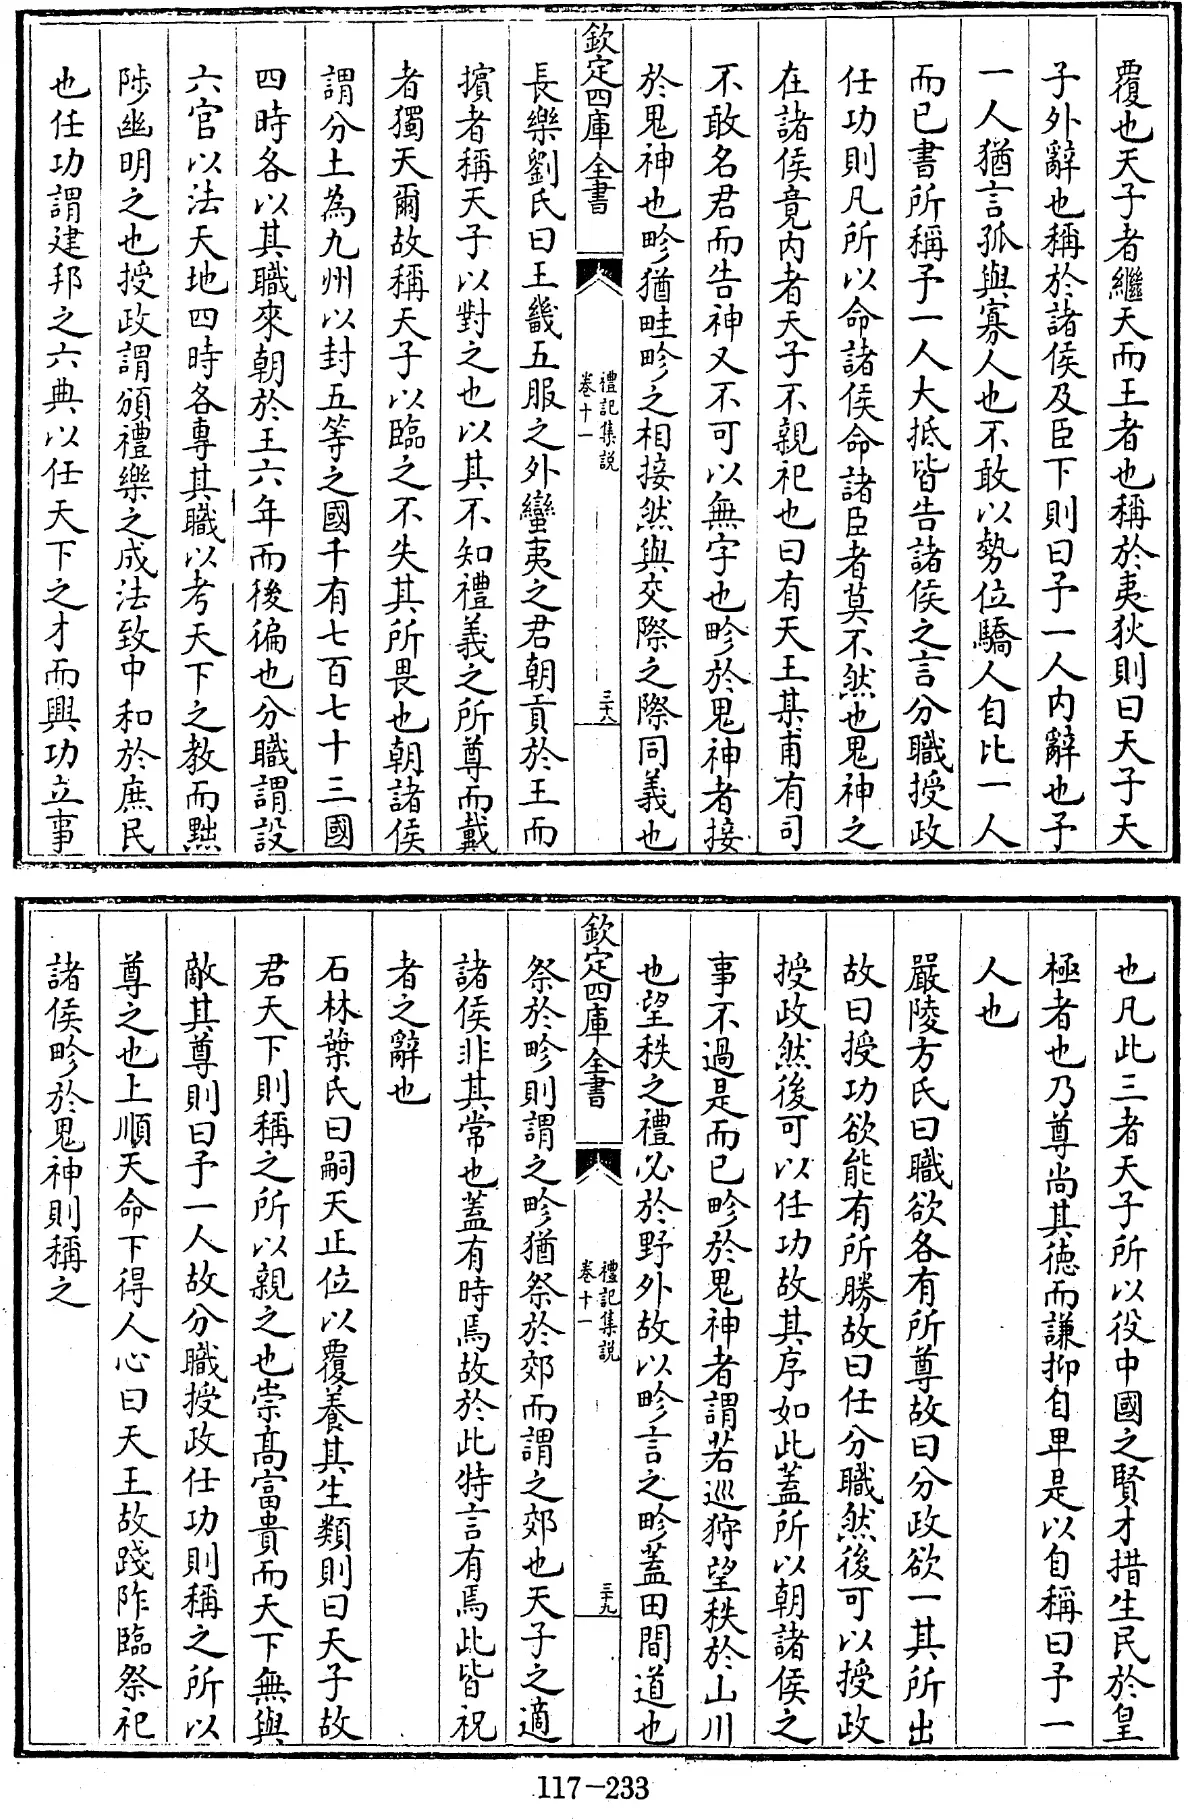 覆也天子者繼天而王者也稱於夷狄則曰天子天
子外辭也稱於諸侯及臣下則曰予一人內辭也予
一人猶言孤與寡人也不敢以勢位驕人自比一人
而已書所稱予一人大抵皆告諸侯之言分職授政
任功則凡所以命諸侯命諸臣者莫不然也鬼神之
在諸侯竟內者天子不親祀也曰有天王某甫有司
不敢名君而告神又不可以無字也畛於鬼神者接
於鬼神也畛猶畦畛之相接然與交際之際同義也
欽定四庫全書
禮記集說
卷十一
三十八
長樂劉氏曰王畿五服之外蠻夷之君朝貢於王而
擯者稱天子以對之也以其不知禮義之所尊而戴
者獨天爾故稱天子以臨之不失其所畏也朝諸侯
謂分土為九州以封五等之國千有七百七十三國
四時各以其職來朝於王六年而後徧也分職謂設
六官以法天地四時各專其職以考天下之教而黜
陟幽明之也授政謂頒禮樂之成法致中和於庶民
也任功謂建邦之六典以任天下之才而興功立事
也凡此三者天子所以役中國之賢才措生民於皇
極者也乃尊尚其徳而謙抑自卑是以自稱曰予一
人也
嚴陵方氏曰職欲各有所尊故曰分政欲一其所出
故曰授功欲能有所勝故曰任分職然後可以授政
授政然後可以任功故其序如此蓋所以朝諸侯之
事不過是而已畛於鬼神者謂若巡狩望秩於山川
也望秩之禮必於野外故以畛言之畛蓋田間道也
欽定四庫全書
禮記集說
卷十一
三十九
祭於畛則謂之畛猶祭於郊而謂之郊也天子之適
諸侯非其常也蓋有時焉故於此特言有焉此皆祝
者之辭也
石林葉氏曰嗣天正位以覆養其生類則曰天子故
君天下則稱之所以親之也崇高富貴而天下無與
敵其尊則曰予一人故分職授政任功則稱之所以
尊之也上順天命下得人心曰天王故踐阼臨祭祀
諸侯畛於鬼神則稱之
117-233